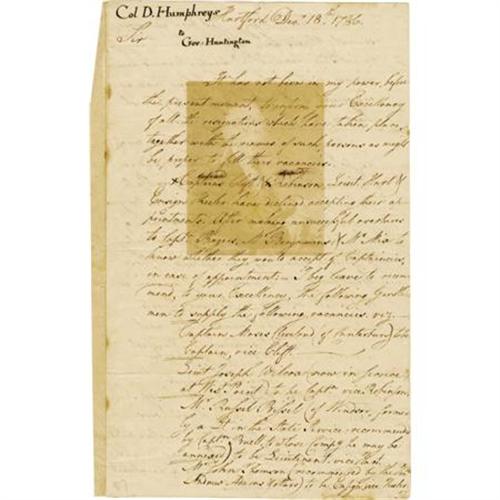 Col D. Humphreys
to
Gov. Huntington
Hartford Decr. 18th. 1786.
Sir
It has not been in my power, before
the present moment, to inform your Excellency
of all the resignations which have taken place,
together with the names of such persons as might
be proper to fill their vacancies.
Captains Clift & Robinson, Lieut. Hart &
Ensign have declined accepting their ap
pointments. After making unsuccessful overtures
to Captn. Rogers, Mr. Benjamins & Mr. to
know whether they would accept of Captaincies,
in case of appointment. I beg leave to recom
mend, to your Excellency, the following Gentle
men to supply the following vacancies. viz.
Captain Moses Cleveland (of Canterbury) to be
Captain, vice Clift.
Lieut Joseph Wilcox (now in service
at West Point) to be Captn. vice Robinson.
Mr. Russel Bissel (of Windsor, former
ly a Lt. in the State Service recommended
by Captn. Buell, to whose Compy. he may be
annexed) to be Lieutenant, vice Hart.
Mr. John Thomson (recommended by the
Andrew Adams & others) to be Ensign vice